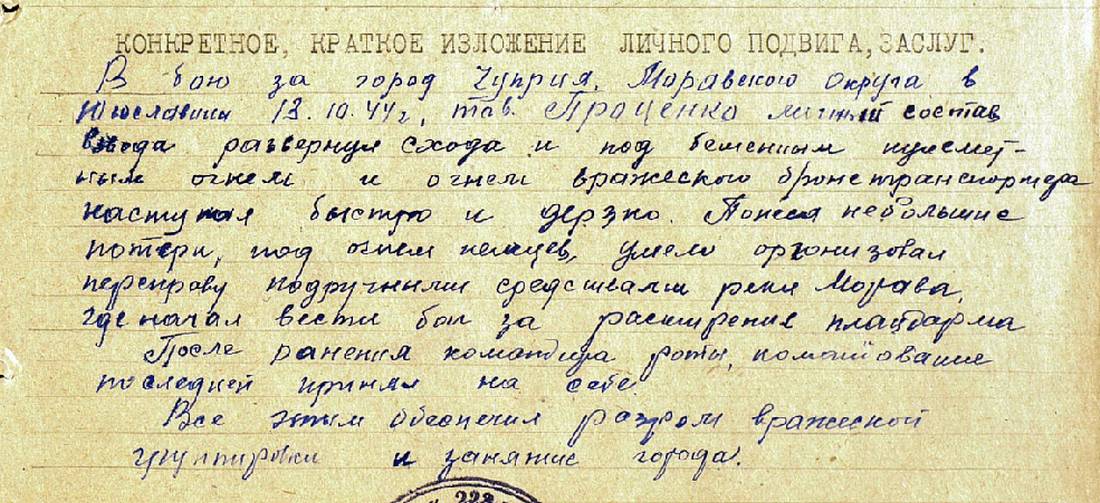 КОНКРЕТНОЕ, КРАТКОЕ ИЗЛОЖЕНИЕ ЛИЧНОГО ПОДВИГА, ЗАСЛУГ.
В бою за город Чуприя, Моравского округа в
Югославии 13.10.44г, тов. Проценко личный состав
взвода развернул сходу и под бешенным пулемет-
ным огнем и огнем вражеского бронетранспортера
наступал быстро и дерзко. Понеся небольшие
потери, под огнем немцев, умело организовал
переправу подручными средствами реки Морава,
где начал вести бои за расширения плацдарма
После ранения командира роты, командование
последней принял на себе
Все этим обеспечил разгром вражеской
группировки и занятие города.
222